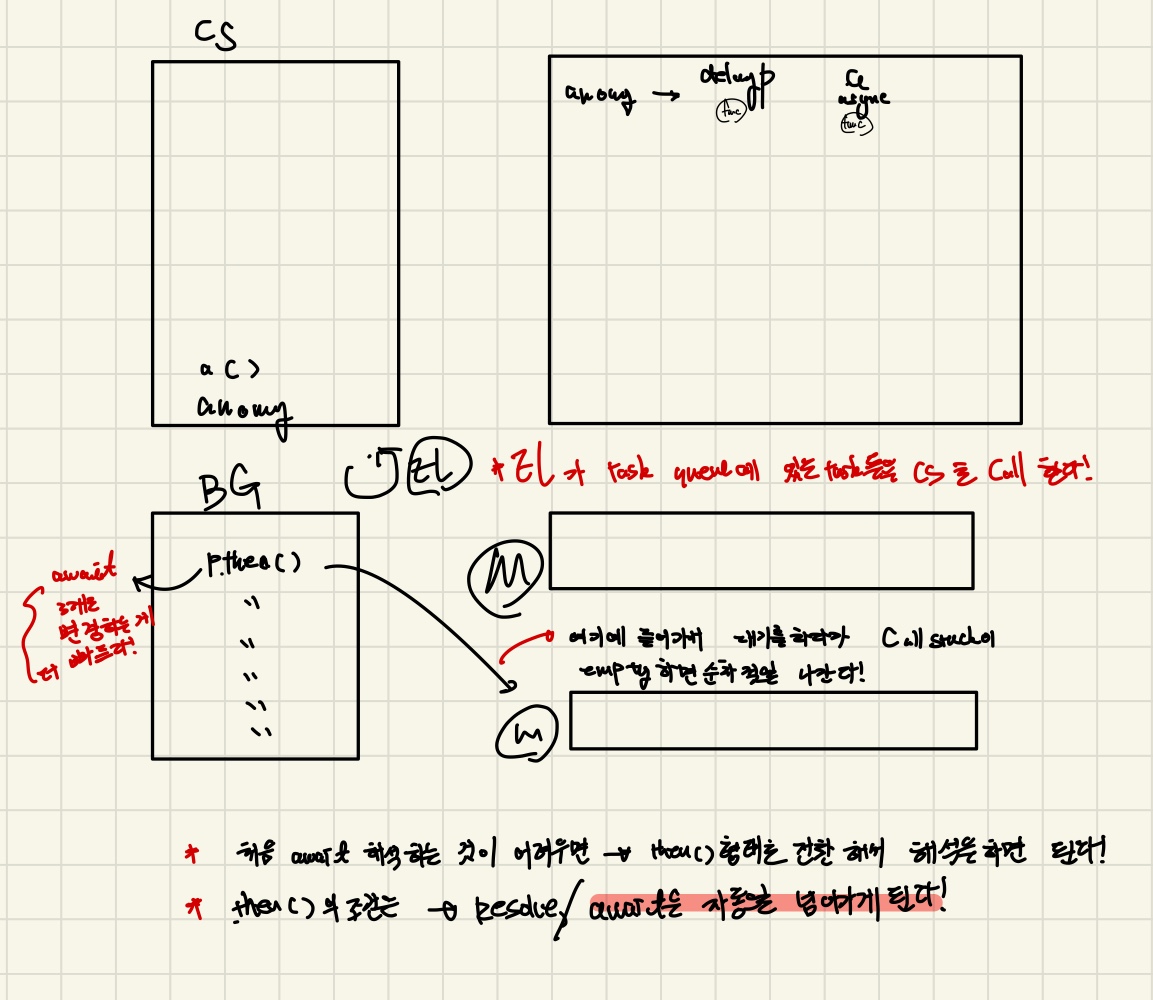 CS
anomy → delayp
func
a
async
func
a()
anomy
BG
EL
* EL가 task queue에 있는 task들을 CS로 Call 한다!
p.then()
"
"
"
"
"
await
로
변경하는 게
더
M
여기에 들어가서 대기를 하다가 Call stack이
empty하면 순차적으로 나간다!
m
* 처음 await 해석하는 것이 어려우면 → then() 형태로 전환 해서 해석을 하면 된다!
* then()의 조건은 → Resolve / await은 자동으로 넘어가게 된다!